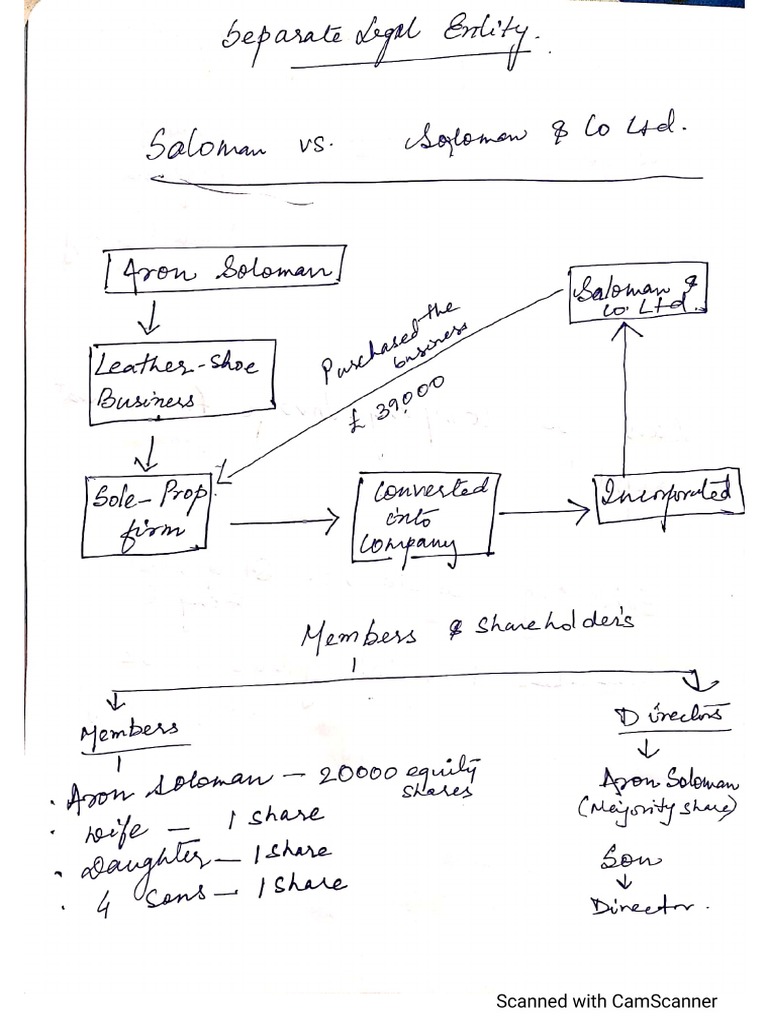 Separate Legal Entity.
Saloman vs. Soloman & Co Ltd.
Aron Soloman
Saloman &
Co. Ltd.
Purchased the
business
£ 39,000
Leather-shoe
Business
Sole-Prop.
firm
Converted
into
Company
Incorporated
Members & Shareholder's
Members
Directors
• Aron Soloman — 20000 equity
shares
• Wife — 1 share
• Daughter — 1 share
• 4 Sons — 1 share
Aron Soloman
(Majority share)
Son
Director.
Scanned with CamScanner